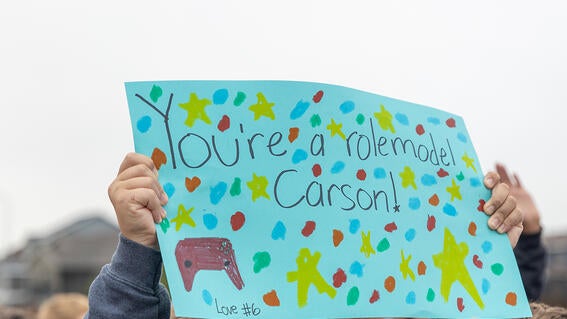 You're a rolemodel
Carson!
Love #6